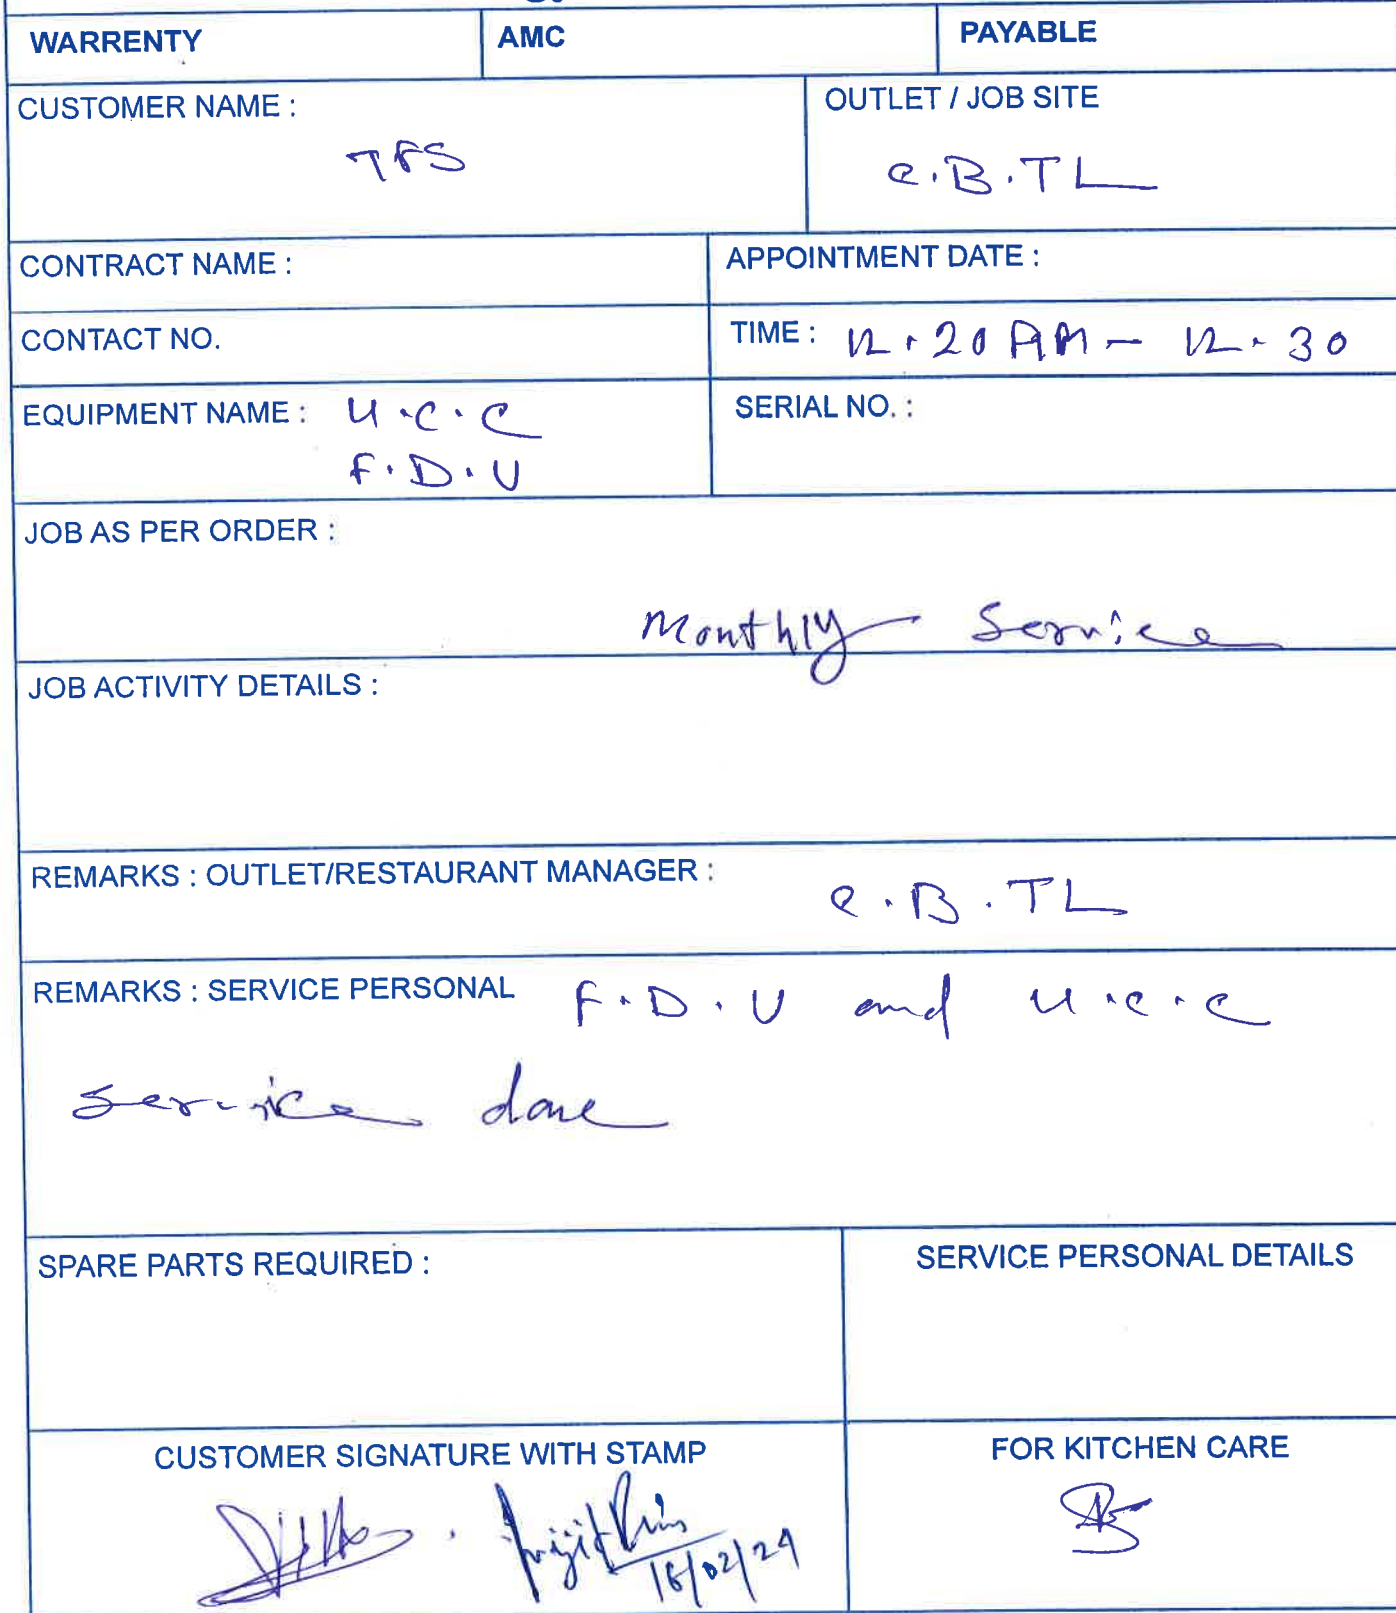 WARRENTY AMC PAYABLE
CUSTOMER NAME : OUTLET / JOB SITE
TFS C.B.TL
CONTRACT NAME : APPOINTMENT DATE :
CONTACT NO. TIME : 12.20 AM - 12.30
EQUIPMENT NAME : U.C.C SERIAL NO. :
F.D.U
JOB AS PER ORDER :
Monthly Service
JOB ACTIVITY DETAILS :
REMARKS : OUTLET/RESTAURANT MANAGER :
C.B.TL
REMARKS : SERVICE PERSONAL F.D.U and U.C.C
Service done
SPARE PARTS REQUIRED : SERVICE PERSONAL DETAILS
CUSTOMER SIGNATURE WITH STAMP FOR KITCHEN CARE
16/02/24